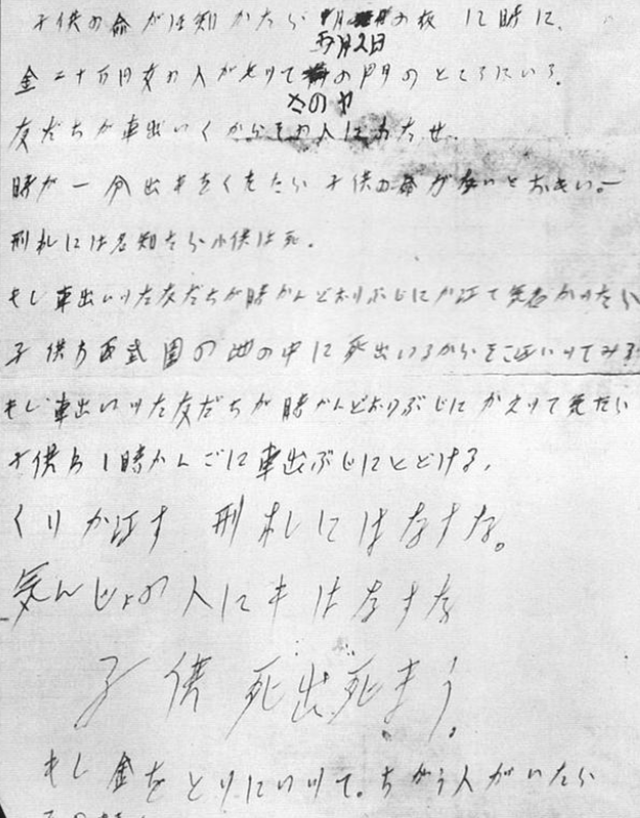 子供の命がほ知かたら の夜12時に、
五月2日
金二十万円女の人がもツて の門のところにいろ。
さのヤ
友だちが車出いくからその人にわたせ。
時が一分出もをくれたら子供の命がないとおもい。ー
刑札には名知たら小供は死。
もし車出いツた友だちが時かんどおりぶじにか江て気名かツたら
子供わ西武園の池の中に死出いるからそこ江いツてみろ
もし車出いツた友だちが時かんどおりぶじにかえツて気たら
子供わ1時かんごに車出ぶじにとどける、
くりか江す 刑札にはなすな。
気んじょの人にもはなすな
子供死出死まう。
もし金をとりにいツて。ちがう人がいたら